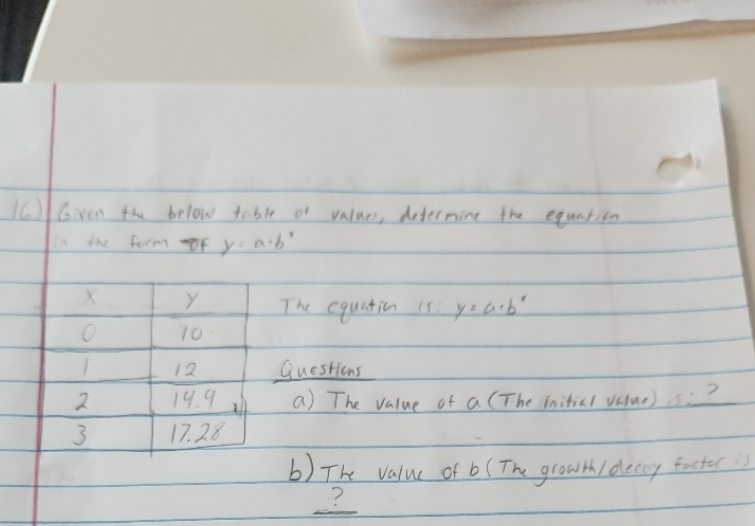 16) Given the below table of values, determine the equation
in the form of y = a·b^x
X Y
0 10
1 12
2 14.4
3 17.28
The equation is: y = a·b^x
Questions
a) The value of a (The initial value) is: ?
b) The value of b (The growth/decay factor is
?